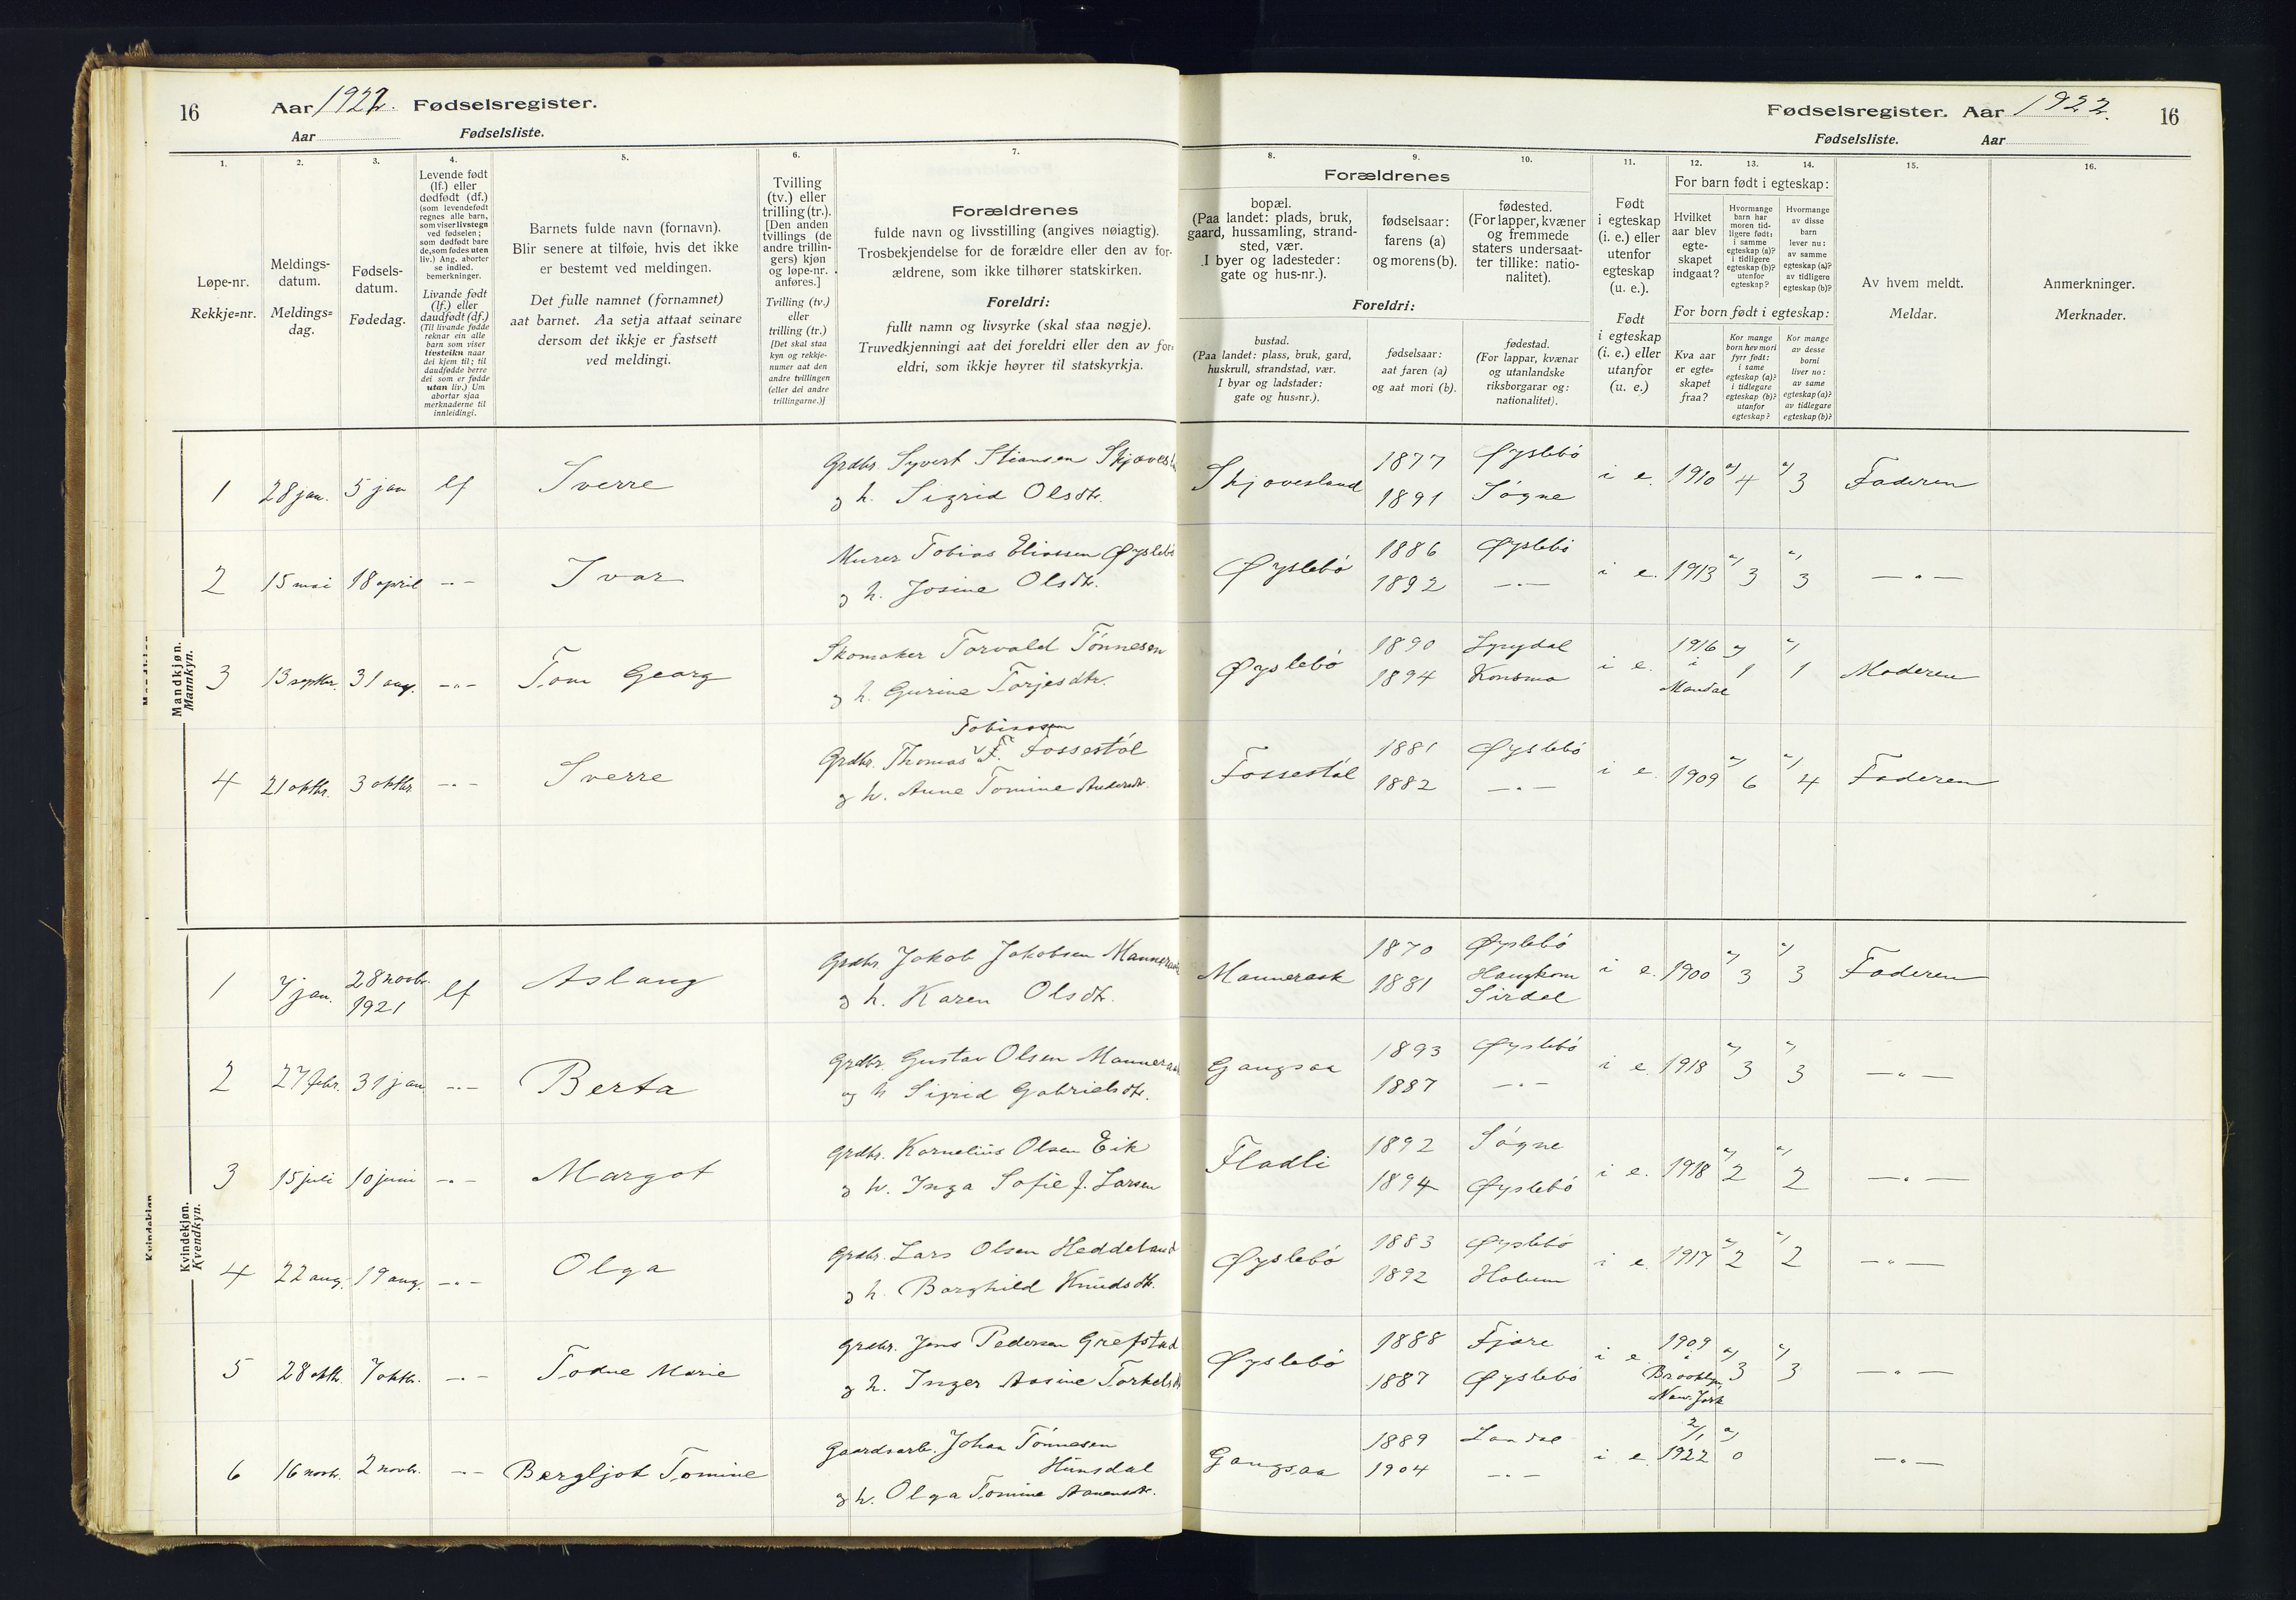 16 Aar 1922. Fødselsregister.
Aar Fødselsliste.
Fødselsregister. Aar 1922. 16
Fødselsliste. Aar
1.
Løpe-nr.
Rekkje=nr.
2.
Meldings-
datum.
Meldings=
dag.
3.
Fødsels-
datum.
Fødedag.
4.
Levende født
(lf.) eller
dødfødt (df.)
(som levendefødt
regnes alle barn,
som viser livstegn
ved fødselen;
som dødfødt bare
de, som fødes uten
liv.) Ang. aborter
se indled.
bemerkninger.
Livande født
(lf.) eller
daudfødt (df.)
(Til livande fødde
reknar ein alle
barn som viser
livsteikn naar
dei kjem til; til
daudfødde berre
dei som er fødde
utan liv.) Um
abortar sjaa
merknaderne til
innleidingi.
5.
Barnets fulde navn (fornavn).
Blir senere at tilføie, hvis det ikke
er bestemt ved meldingen.
Det fulle namnet (fornamnet)
aat barnet. Aa setja attaat seinare
dersom det ikkje er fastsett
ved meldingi.
6.
Tvilling
(tv.) eller
trilling (tr.).
[Den anden
tvillings (de
andre trillin-
gers) kjøn
og løpe-nr.
anføres.]
Tvilling (tv.)
eller
trilling (tr.)
[Det skal staa
kyn og rekkje-
numer aat den
andre tvillingen
(eller dei andre
trillingarne.)]
7.
Forældrenes
fulde navn og livsstilling (angives nøiagtig).
Trosbekjendelse for de forældre eller den av for-
ældrene, som ikke tilhører statskirken.
Foreldri:
fullt namn og livsyrke (skal staa nøgje).
Truvedkjenningi aat dei foreldri eller den av for-
eldri, som ikkje høyrer til statskyrkja.
8.
Forældrenes
bopæl.
(Paa landet: plads, bruk,
gaard, hussamling, strand-
sted, vær.
I byer og ladesteder:
gate og hus-nr.).
Foreldri:
bustad.
(Paa landet: plass, bruk, gard,
huskrull, strandstad, vær.
I byar og ladstader:
gate og hus=nr.).
9.
fødselsaar:
farens (a)
og morens (b).
fødselsaar:
aat faren (a)
og aat mori (b).
10.
fødested.
(For lapper, kvæner
og fremmede
staters undersaat-
ter tillike: natio-
nalitet).
fødestad.
(For lappar, kvænar
og utanlandske
riksborgarar og:
nationalitet).
11.
Født
i egteskap
(i. e.) eller
utenfor
egteskap
(u. e.).
Født
i egteskap
(i. e.) eller
utanfor
(u. e.)
12. 13. 14.
For barn født i egteskap:
Hvilket
aar blev
egte-
skapet
indgaat?
Hvormange
barn har
moren tid-
ligere født:
i samme
egteskap (a)?
i tidligere
egteskap (b)?
utenfor
egteskap?
Hvormange
av disse
barn
lever nu:
av samme
egteskap (a)?
av tidligere
egteskap (b)?
For born født i egteskap:
Kva aar
er egte=
skapet
fraa?
Kor mange
born hev mori
fyrr født:
i same
egteskap (a)?
i tidlegare
egteskap (b)?
utanfor
egteskap?
Kor mange
av desse
borni
liver no:
av same
egteskap (a)?
av tidlegare
egteskap (b)?
15.
Av hvem meldt.
Meldar.
16.
Anmerkninger.
Merknader.
Mandkjøn.
Mannkyn.
1 28 jan. 5 jan lf Sverre
Grdbr. Syvert Stiansen
g h. Sigrid Olsdtr.
Skjovesland 1877 Øyslebö
1891 Søgne
i e. 1910 a) 4 a) 3 Faderen
2 15 mai 18 april -"- Ivar
Murer Tobias Eliassen Øyslebö
g h. Josine Olsdtr.
Øyslebö 1886 Øyslebö
1892 -"-
i e. 1913 a) 3 a) 3 -"-
3 13 septbr. 31 aug. -"- Tom Georg
Skomaker Torvald Tönnesen
g h. Gurine Torjesdtr.
Øyslebö 1890 Lyngdal
1894 Konsmo
i e. 1916 i Mandal a) 1 a) 1 Moderen
4 21 oktbr. 3 oktbr -"- Sverre
Tobiassen
Grdbr. Thomas F. Fossestöl
g h. Anne Tomine Andersdtr.
Fossestöl 1881 Øyslebö
1882 -"-
i e. 1909 a) 6 a) 4 Faderen
Kvindekjøn.
Kvendkyn.
1 7 jan. 28 novbr. 1921 lf Aslaug
Grdbr. Jakob Jakobsen Manneraak
g h. Karen Olsdtr.
Manneraak 1870 Øyslebö
1881 Haughom
Sirdal
i e. 1900 a) 3 a) 3 Faderen
2 27 febr. 31 jan -"- Berta
Grdbr. Gustav Olsen Manneraak
og h Sigrid Gabrielsdtr.
Gangsaa 1893 Øyslebö
1887 -"-
i e. 1918 a) 3 a) 3 -"-
3 15 juli 10 juni -"- Margot
Grdbr. Kornelius Olsen Eik
g h. Inga Sofie f. Larsen
Fladli 1892 Søgne
1894 Øyslebö
i e. 1918 a) 2 a) 2 -"-
4 22 aug. 19 aug. -"- Olga
Grdbr. Lars Olsen Heddeland
g h. Borghild Knudsdtr.
Øyslebö 1883 Øyslebö
1892 Holum
i e. 1917 a) 2 a) 2 -"-
5 28 oktbr. 7 oktbr. -"- Todne Marie
Grdbr. Jens Pedersen Grefstad
g h. Inger Aasine Torkelsdtr
Øyslebö 1888 Fjære
1887 Øyslebö
i e. 1909 i Brooklyn, New-York a) 3 a) 3 -"-
6 16 novbr. 2 novbr. -"- Bergljot Tomine
Gaardsarb. Johan Tönnesen
Hunsdal
g h. Olga Tomine Aanensdtr.
Gangsaa 1889 Laudal
1904 -"-
i e. 2/1 1922 a) 0 -"-